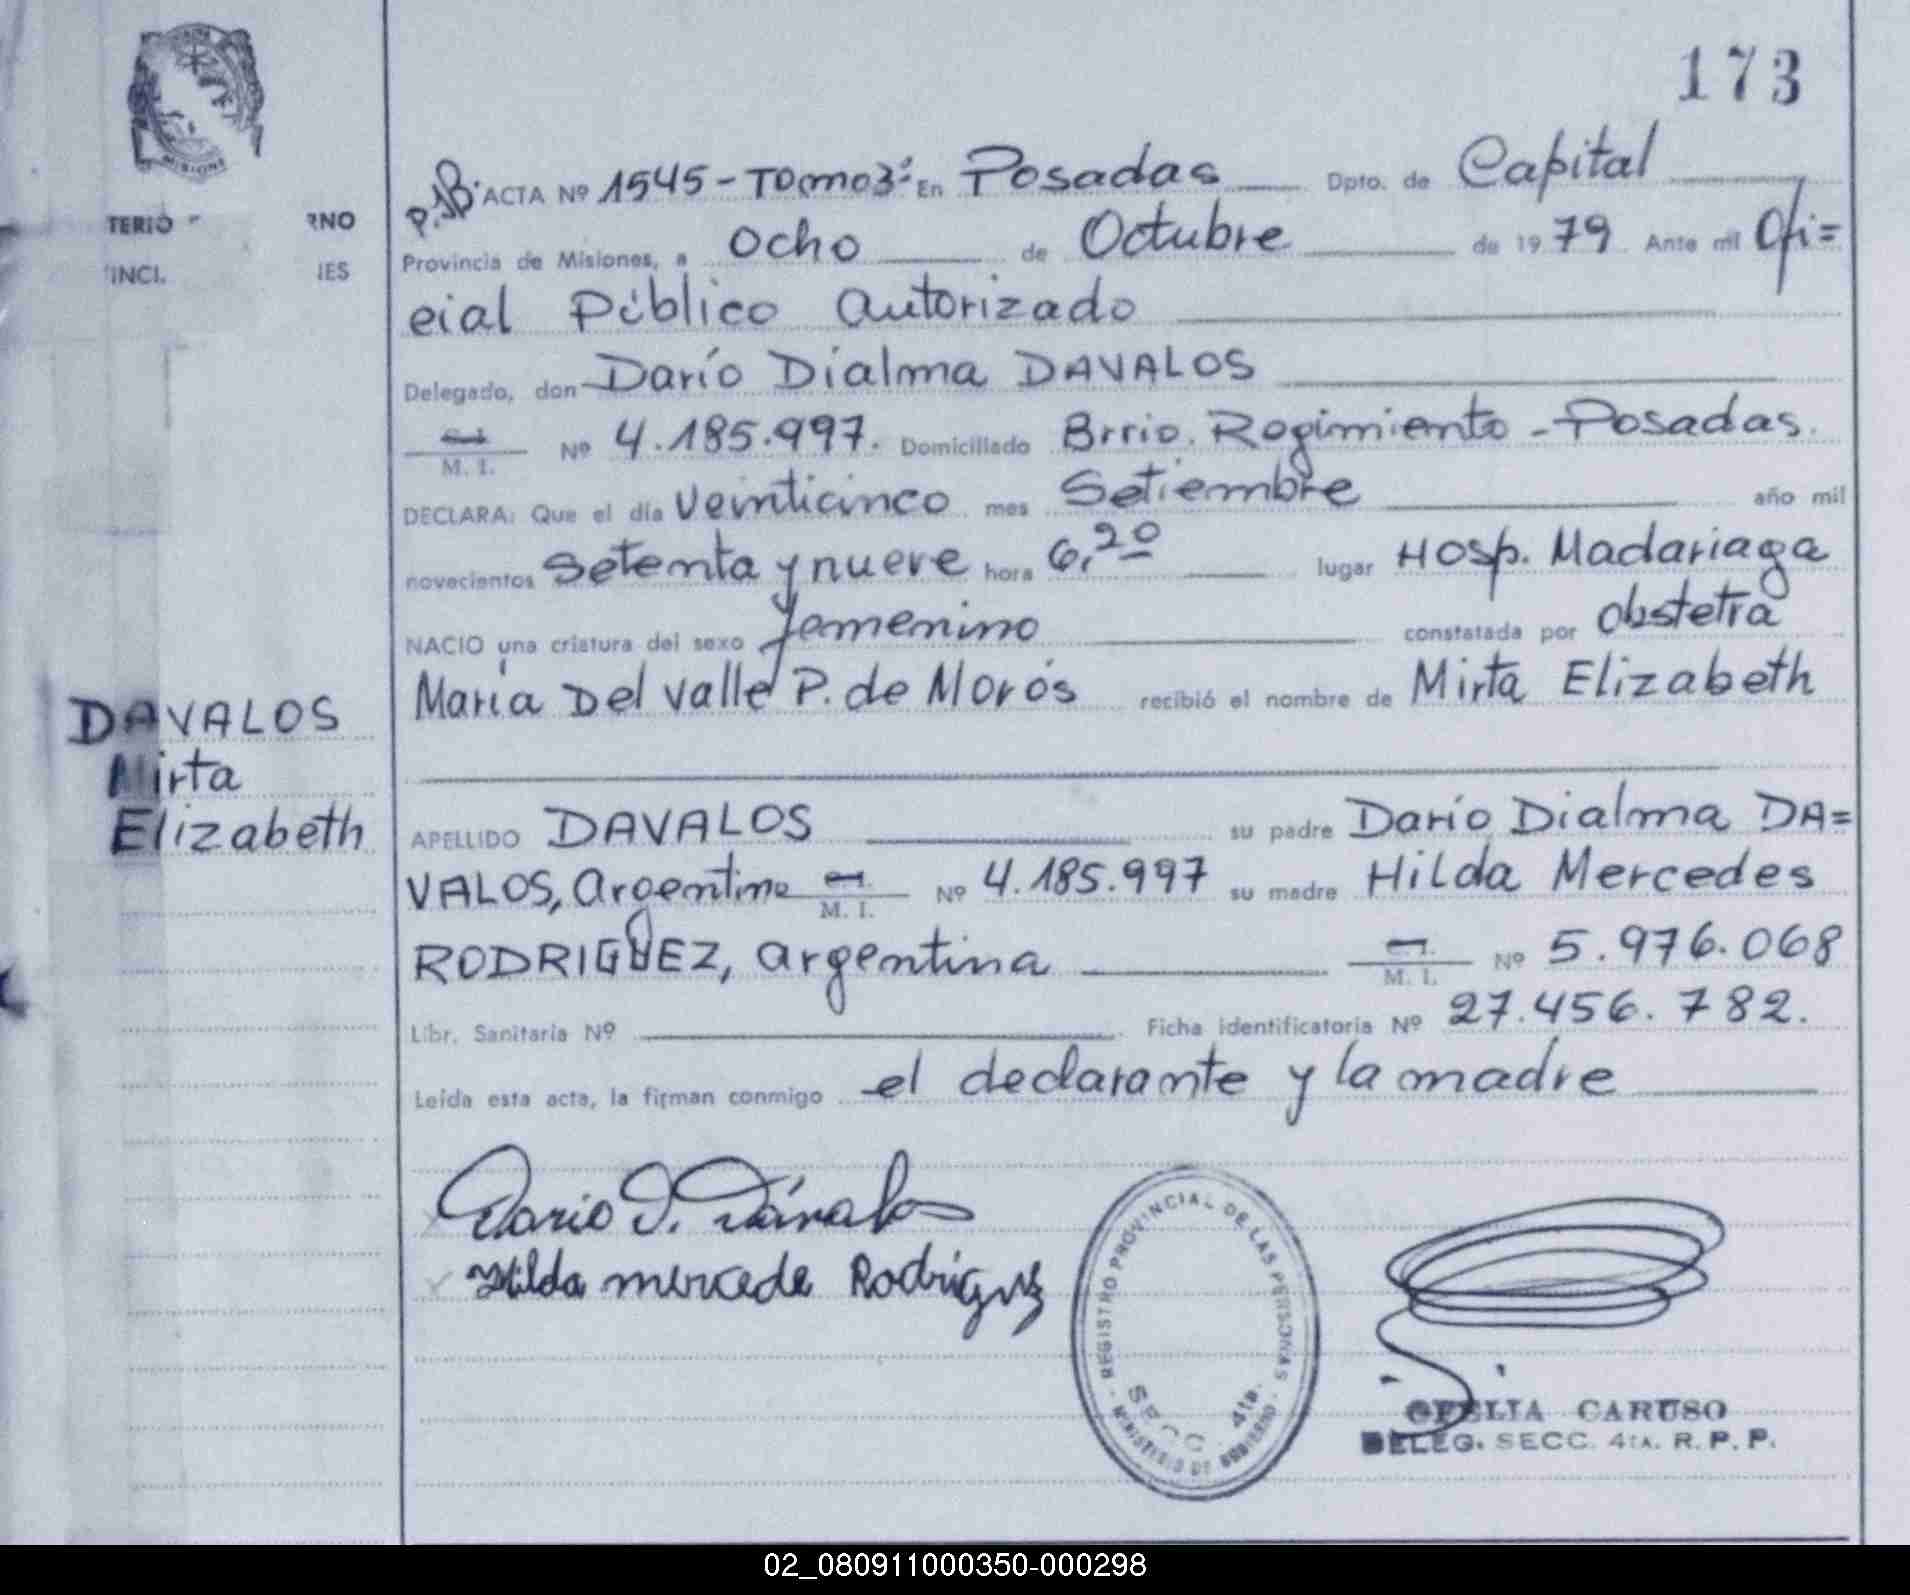 173
MISIONES
TERIO RNO
INCI. IES
P.JB. ACTA Nº 1545-TOmo3º En Posadas Dpto. de Capital
Provincia de Misiones, a ocho de Octubre de 1979 Ante mí Ofi=
cial Público Autorizado
Delegado, don Darío Dialma DAVALOS
M. I. Nº 4.185.997. Domiciliado Brrio. Regimiento - Posadas.
DECLARA: Que el día veinticinco mes Setiembre año mil
novecientos Setenta y nueve hora 6,20 lugar Hosp. Madariaga
NACIO una criatura del sexo femenino constatada por obstetra
María Del Valle P. de Morós recibió el nombre de Mirta Elizabeth
DAVALOS
Mirta
Elizabeth
APELLIDO DAVALOS su padre Darío Dialma DA=
VALOS, Argentino C.I. M. I. Nº 4.185.997 su madre Hilda Mercedes
RODRIGUEZ, argentina C.I. M. I. Nº 5.976.068
Libr. Sanitaria Nº Ficha identificatoria Nº 27.456.782.
Leída esta acta, la firman conmigo el declarante y la madre
Dario D. Dávalos
Hilda mercede Rodriguez
REGISTRO PROVINCIAL DE LAS PERSONAS
SECC. 4ta.
MINISTERIO DE GOBIERNO
OFELIA CARUSO
DELEG. SECC. 4TA. R. P. P.
02_080911000350-000298